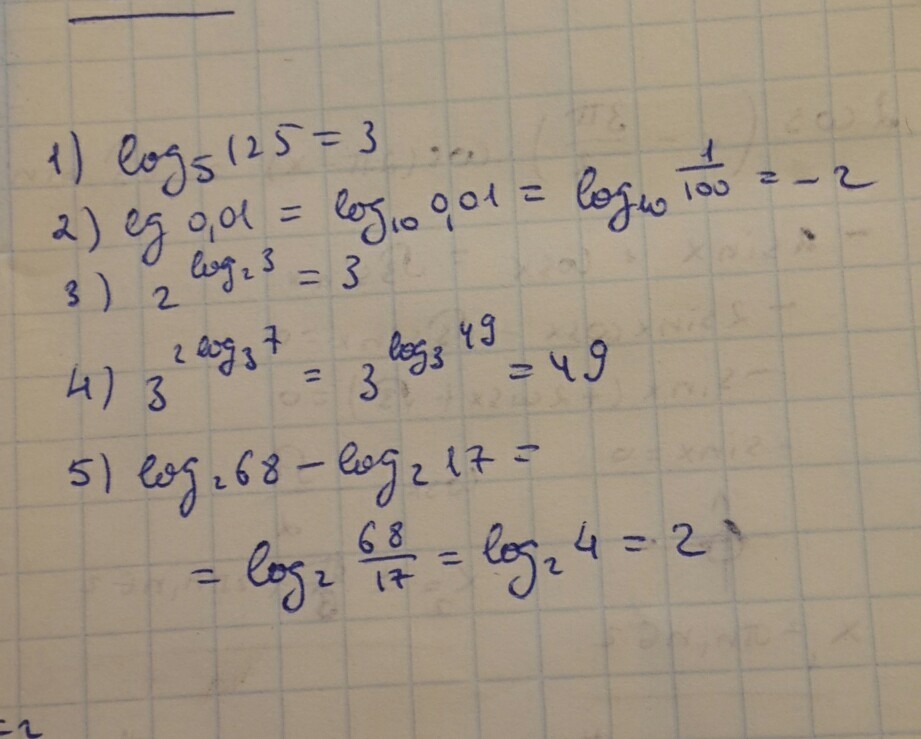 1) log₅125 = 3
2) lg 0,01 = log₁₀ 0,01 = log₁₀ 1/100 = -2
3) 2^(log₂3) = 3
4) 3^(2log₃7) = 3^(log₃49) = 49
5) log₂68 - log₂17 =
= log₂ 68/17 = log₂4 = 2